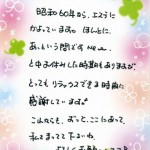 昭和60年から、ようこに
かよっています。ほんとに、
あ、という間です ne ne.
と中お休みした時期もありますが
とってもリラックスできる時間に
感謝しています。
これからも、ずっとここにあって、
私をまってて下さいね。
よろしくお願い